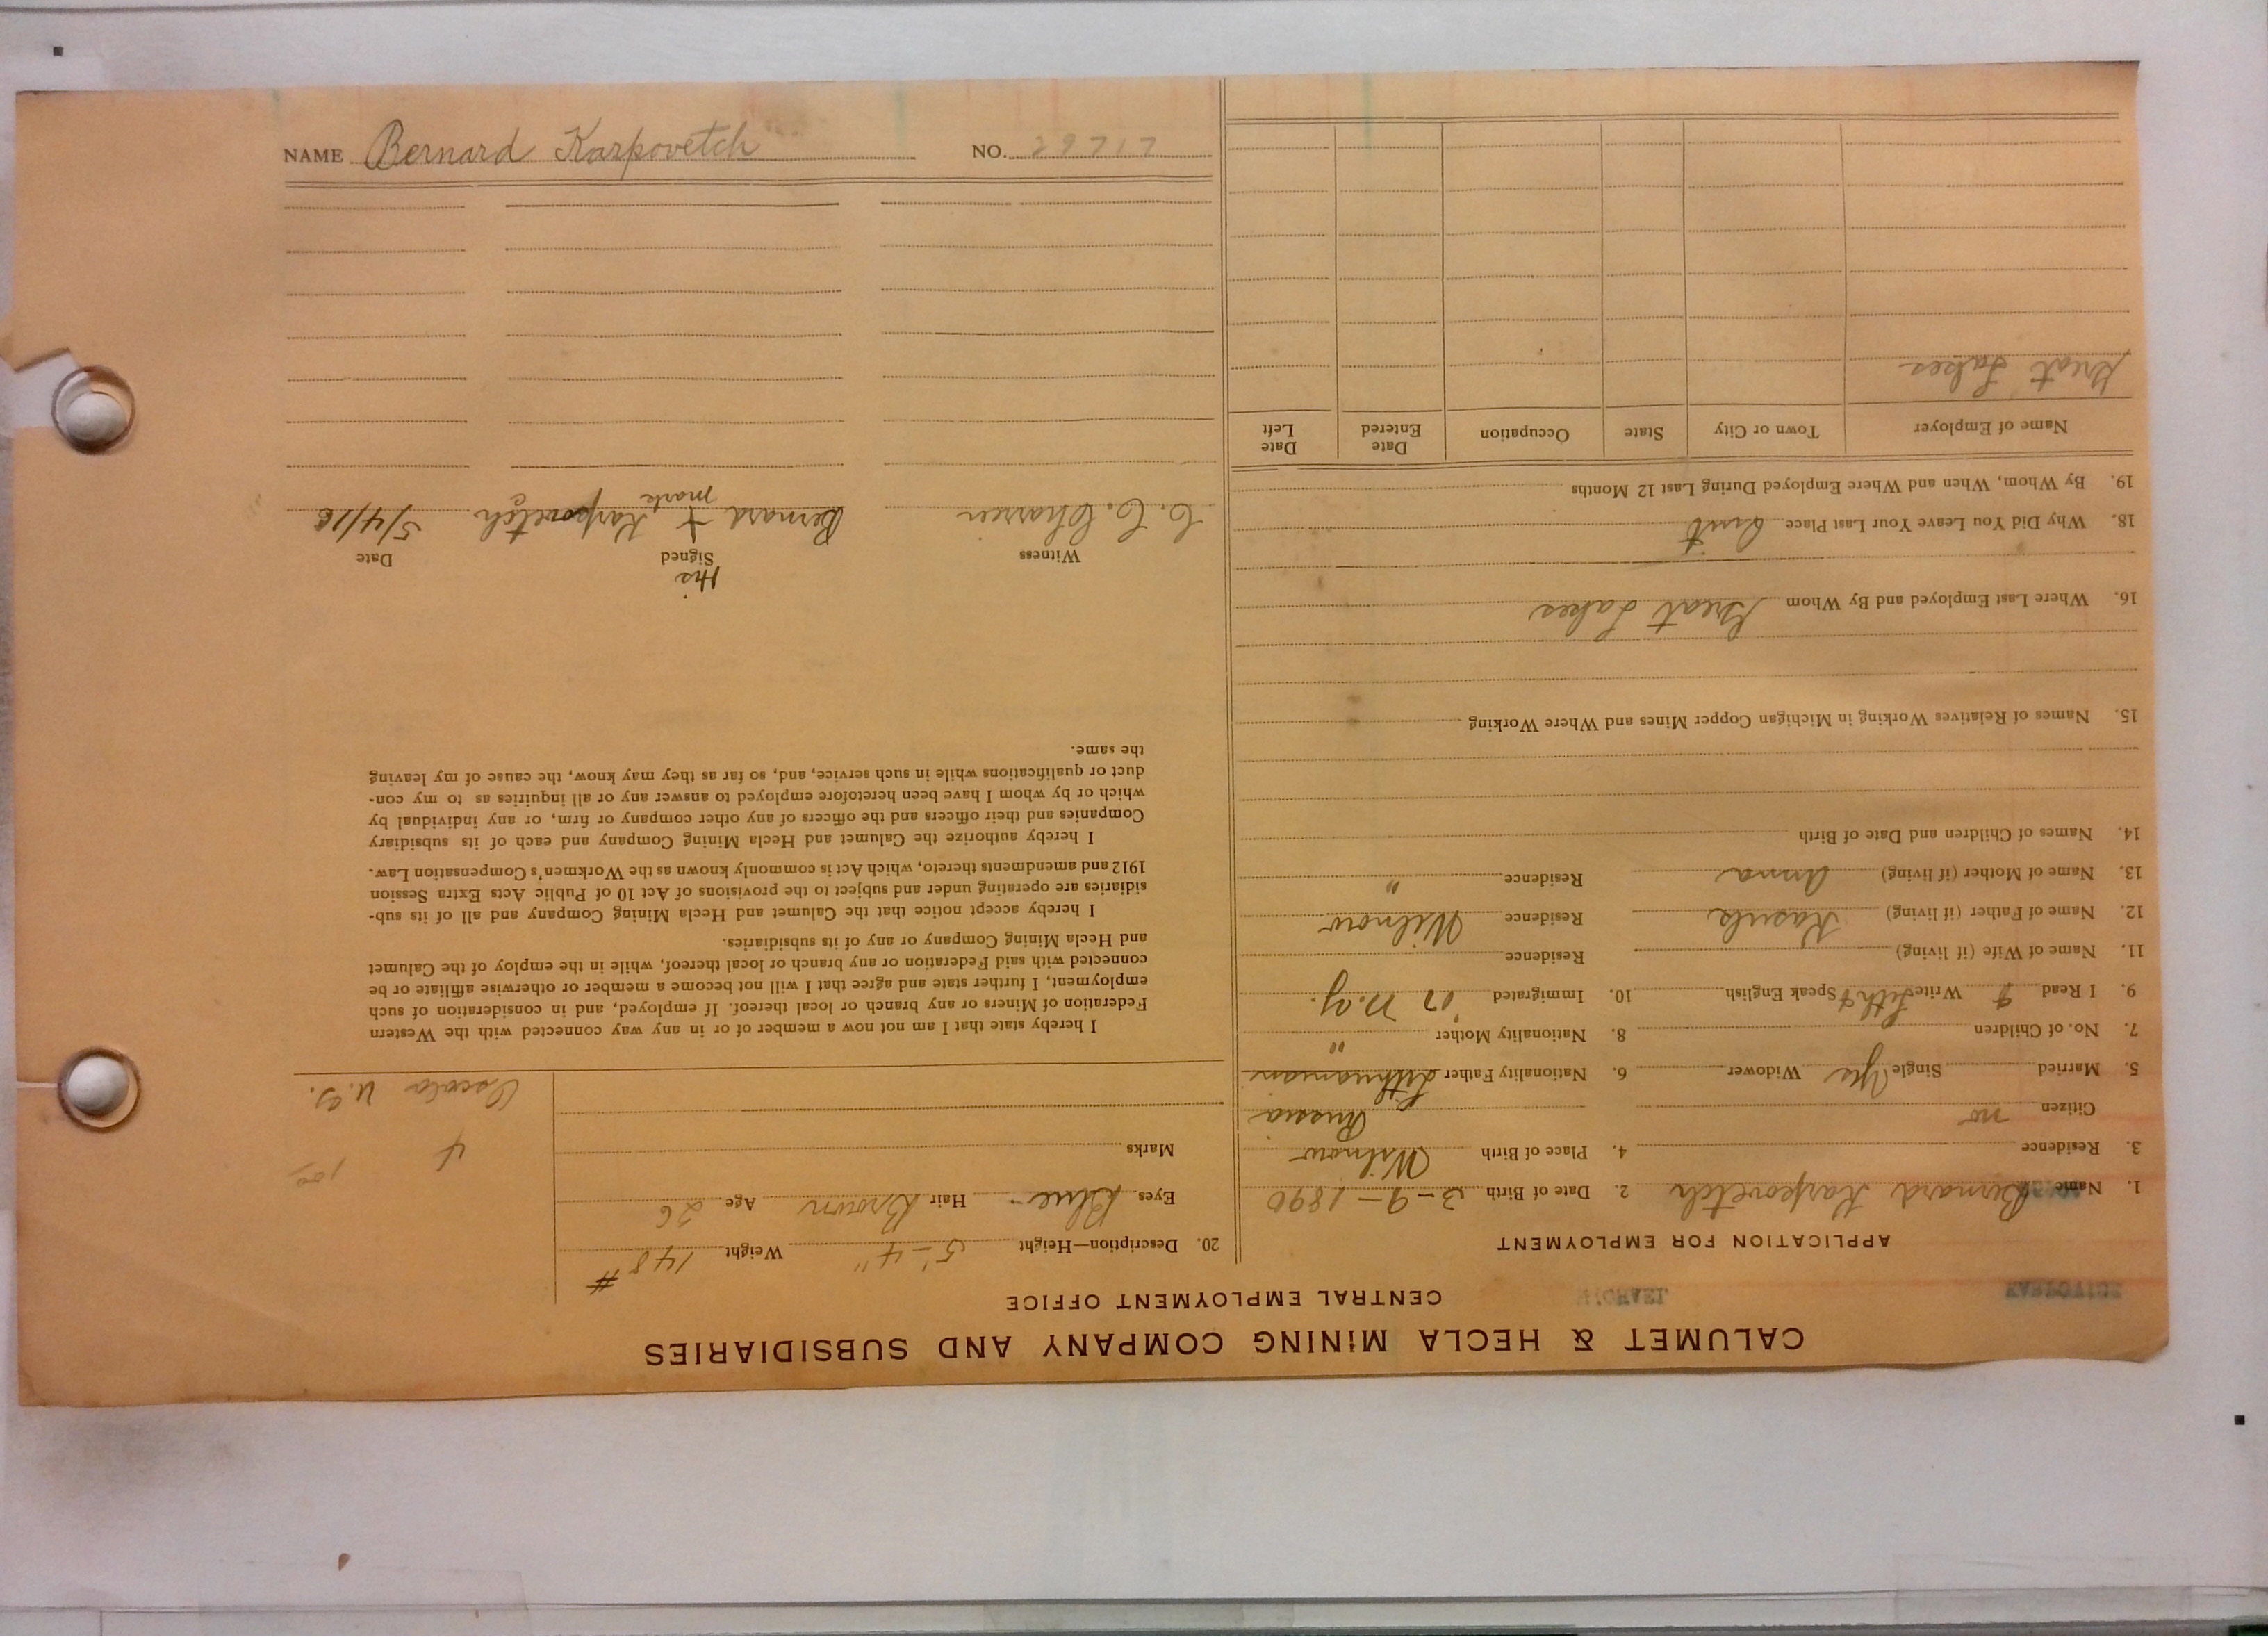 NAME Bernard Karpovetch NO. 29717
CALUMET & HECLA MINING COMPANY AND SUBSIDIARIES
CENTRAL EMPLOYMENT OFFICE
KARPOVICH MICHAEL
APPLICATION FOR EMPLOYMENT
1. Name Bernard Karpovetch 2. Date of Birth 3-9-1890
3. Residence 4. Place of Birth Wilnow
Citizen no Russia
5. Married Single Yes Widower 6. Nationality Father Lithuanian
7. No. of Children 8. Nationality Mother "
9. I Read Write Lith Speak English 10. Immigrated 07 N.Y.
11. Name of Wife (if living) Residence
12. Name of Father (if living) Residence Wilnow
13. Name of Mother (if living) Anna Residence "
14. Names of Children and Date of Birth
15. Names of Relatives Working in Michigan Copper Mines and Where Working
16. Where Last Employed and By Whom Great Lakes
18. Why Did You Leave Your Last Place Quit
19. By Whom, When and Where Employed During Last 12 Months
Name of Employer Town or City State Occupation Date Entered Date Left
Great Lakes
20. Description—Height 5'-4" Weight 148#
Eyes Blue Hair Brown Age 26
Marks
4
Osceola U.G.
I hereby state that I am not now a member of or in any way connected with the Western
Federation of Miners or any branch or local thereof. If employed, and in consideration of such
employment, I further state and agree that I will not become a member or otherwise affiliate or be
connected with said Federation or any branch or local thereof, while in the employ of the Calumet
and Hecla Mining Company or any of its subsidiaries.
I hereby accept notice that the Calumet and Hecla Mining Company and all of its sub-
sidiaries are operating under and subject to the provisions of Act 10 of Public Acts Extra Session
1912 and amendments thereto, which Act is commonly known as the Workmen's Compensation Law.
I hereby authorize the Calumet and Hecla Mining Company and each of its subsidiary
Companies and their officers and the officers of any other company or firm, or any individual by
which or by whom I have been heretofore employed to answer any or all inquiries as to my con-
duct or qualifications while in such service, and, so far as they may know, the cause of my leaving
the same.
His
Witness Signed Date
C. C. Bernard + Karpovetch 5/4/16
mark